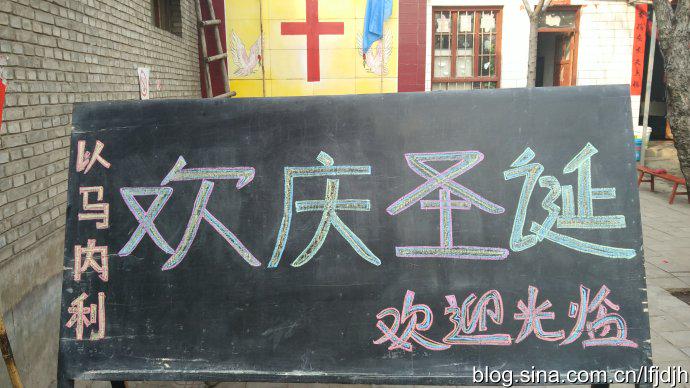 以马内利
欢庆圣诞
欢迎光临
blog.sina.com.cn/lfjdjh